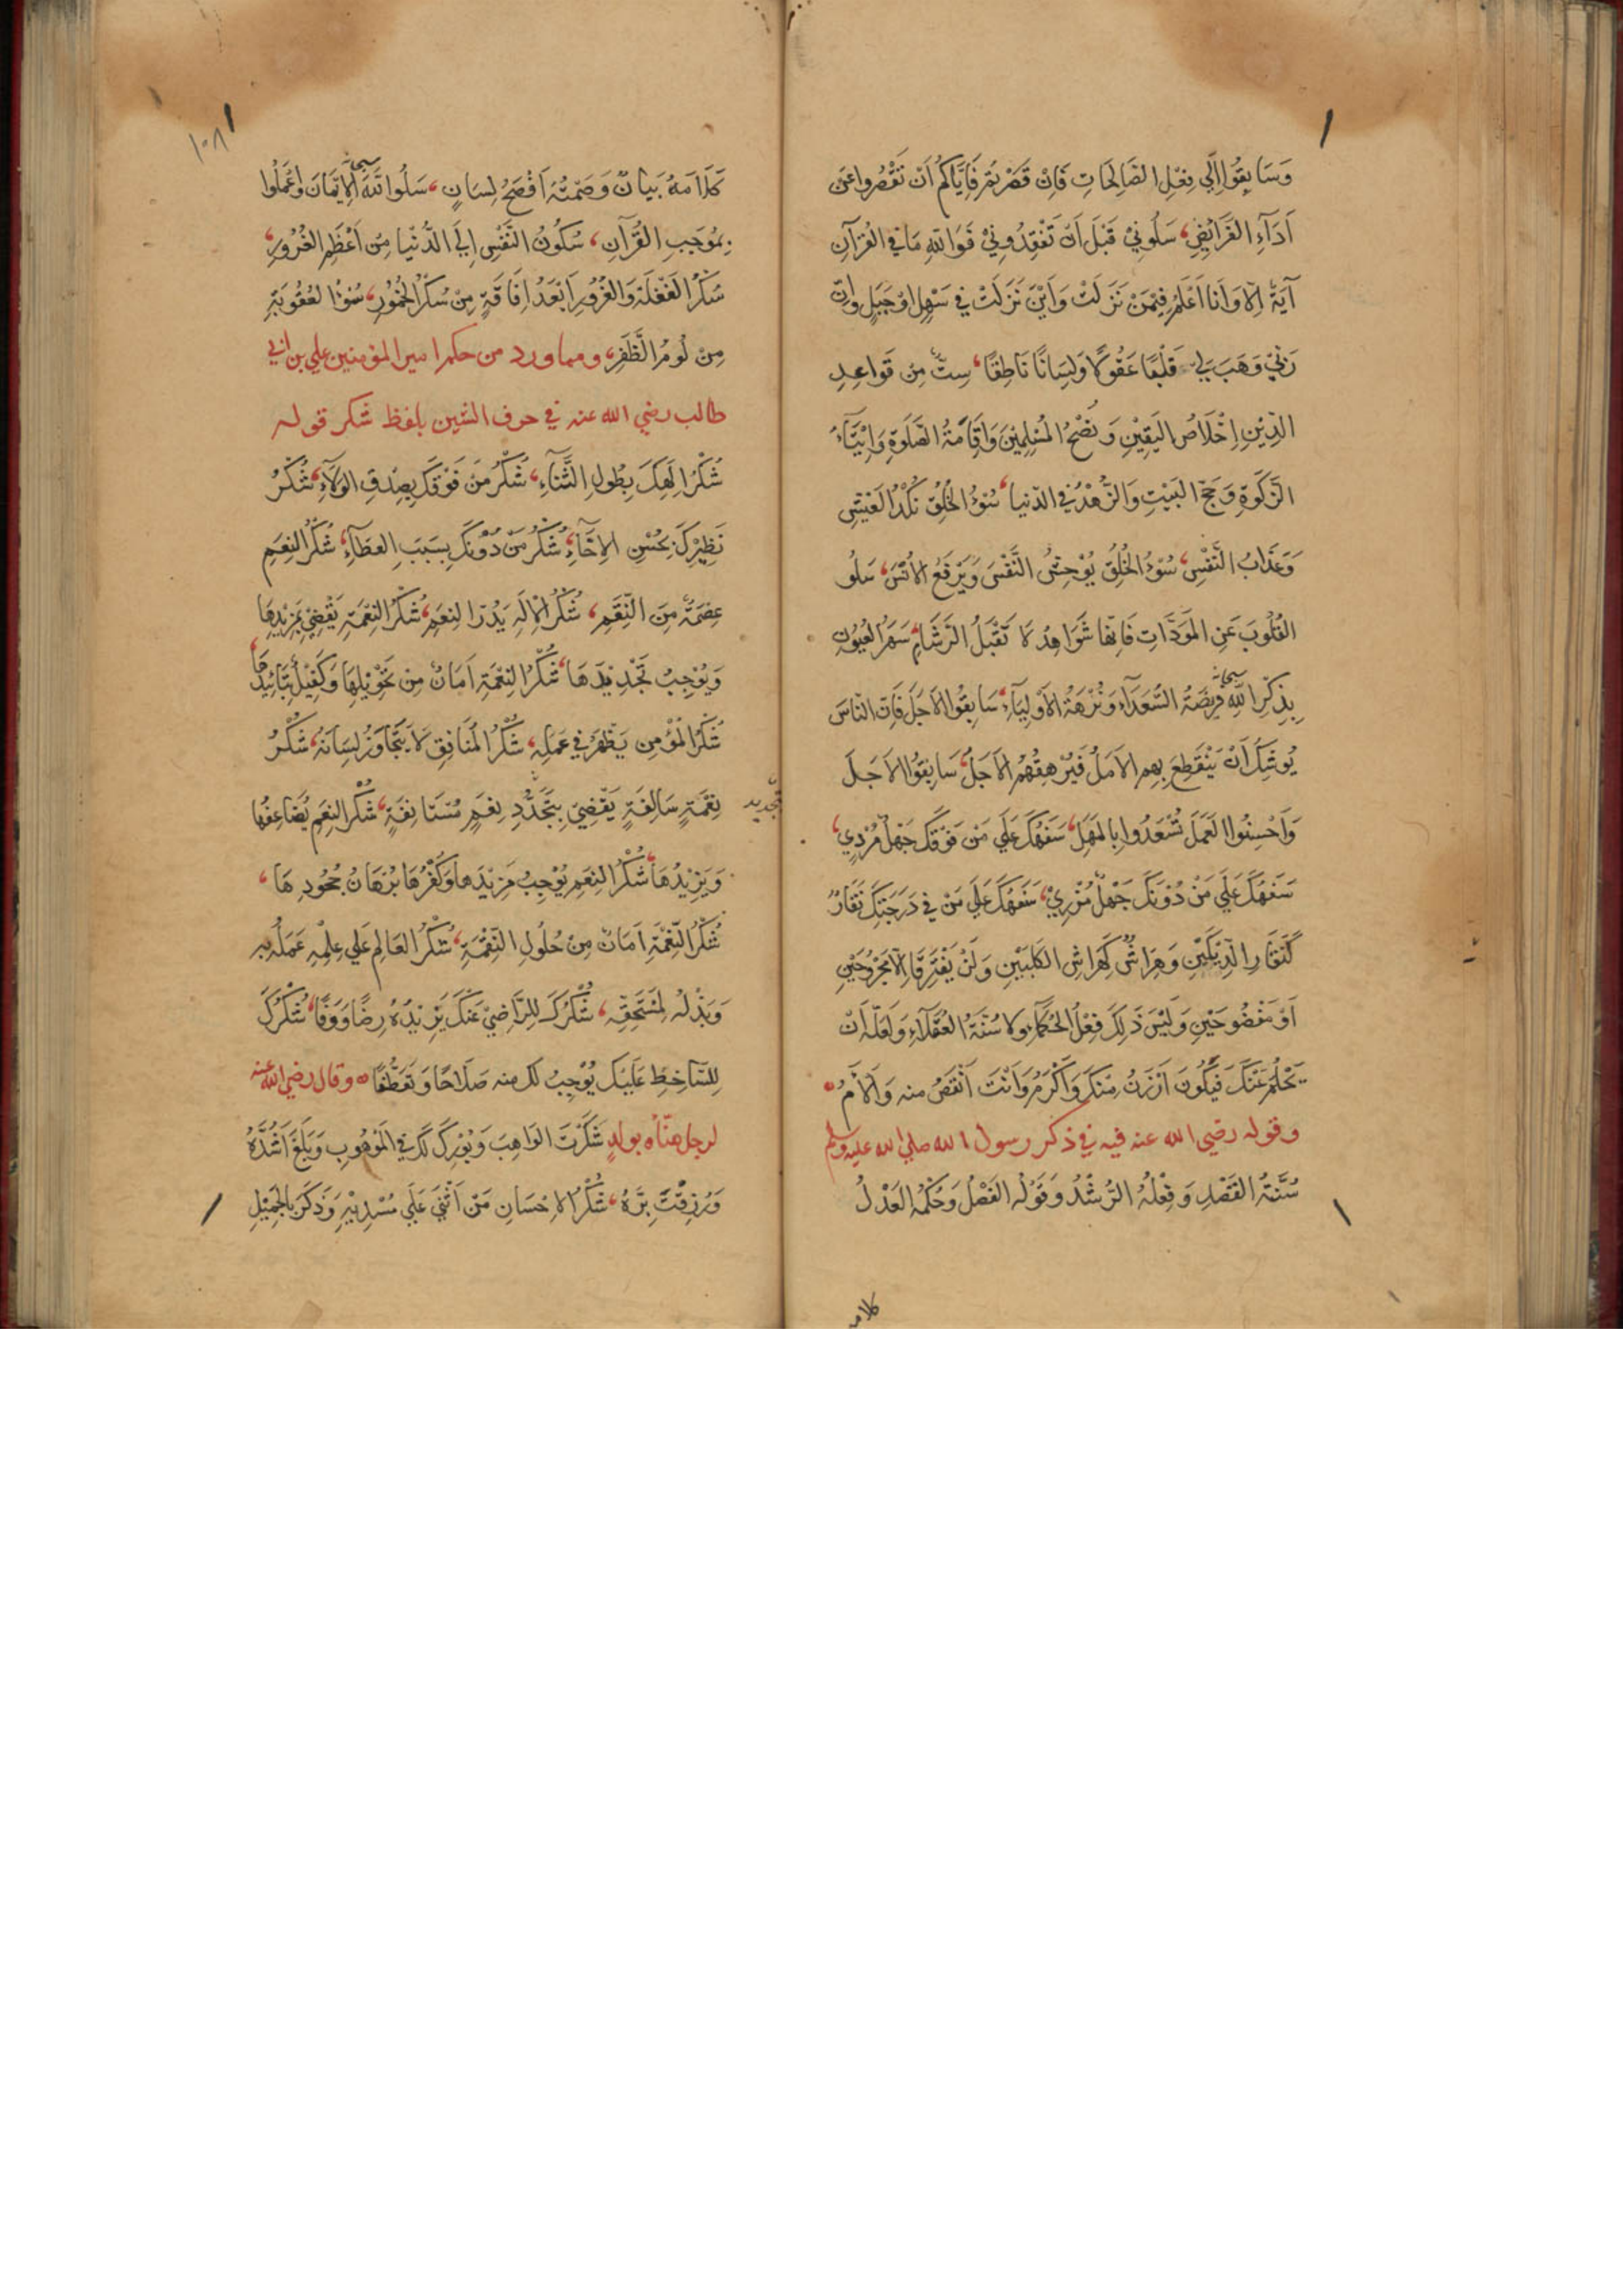 وَسَابِقُوا اِلَي فِعْلِ الصَّالِحَاتِ فَاِنْ قَصَّرْتُمْ فَاِيَّاكُمْ اَنْ تُقَصِّرُوا عَنْ
اَدَآءِ الفَرَآئِضِ، سَلُونِيْ قَبْلَ اَنْ تَفْقِدُونِيْ فَوَاللّٰهِ مَا فِي القُرْآنِ
آيَةٌ اِلَّا وَاَنَا اَعْلَمُ فِيْمَنْ نَزَلَتْ وَاَيْنَ نَزَلَتْ فِي سَهْلٍ اَوْ جَبَلٍ وَاِنَّ
رَبِّيْ وَهَبَ لِي قَلْبًا عَقُولًا وَلِسَانًا نَاطِقًا، سِتٌّ مِنْ قَوَاعِدِ
الدِّيْنِ اِخْلَاصُ اليَقِيْنِ وَنُصْحُ المُسْلِمِيْنَ وَاِقَامَةُ الصَّلٰوةِ وَاِيْتَآءُ
الزَّكٰوةِ وَحَجُّ البَيْتِ وَالزُّهْدُ فِي الدّنيا، سُوْءُ الخُلُقِ نَكَدُ العَيْشِ
وَعَذَابُ النَّفْسِ، سُوْءُ الخُلُقِ يُوْحِشُ النَّفْسَ وَيَرْفَعُ الاُنْسَ، سَلُو
القُلُوبَ عَنِ المَوَدَّاتِ فَاِنَّهَا شَوَاهِدُ لَا تَقْبَلُ الرُّشَا، سَهَرُ العُيُونِ
بِذِكْرِ اللّٰهِ سبحانه فُرْصَةُ السُّعَدَآءِ وَنُزْهَةُ الاَوْلِيَآءِ، سَابِقُوا الاَجَلَ فَاِنَّ النَّاسَ
يُوشِكُ اَنْ يَنْقَطِعَ بِهِمِ الاَمَلُ فَيُرْهِقُهُمُ الاَجَلُ، سَابِقُوا الاَجَلَ
وَاَحْسِنُوا العَمَلَ تُسْعَدُوا بِالمَهَلِ، سَفَهُكَ عَلَي مَنْ فَوْقَكَ جَهْلٌ مُرْدِي،
سَفَهُكَ عَلَي مَنْ دُوْنَكَ جَهْلٌ مُزْرِيْ، سَفَهُكَ عَلَي مَنْ فِي دَرَجَتِكَ نِقَارٌ
كَنِقَارِ الدِّيْكَيْنِ وَهِرَاشٌ كَهِرَاشِ الكَلْبَيْنِ وَلَنْ يَفْتَرِقَا اِلَّا مَجْرُوْحَيْنِ
اَوْ مَفْضُوْحَيْنِ وَلَيْسَ ذَلِكَ فِعْلُ الحُكَمَآءِ وَلَا سُنَّةُ العُقَلَآءِ وَلَعَلَّهُ اَنْ
يَحْلُمَ عَنْكَ فَيَكُونَ اَرْزَنُ مِنْكَ وَاَكْرَمُ وَاَنْتَ اَنْقَصُ منه وَاَلْاَمُ
وقوله رضي الله عنه فيه في ذكر رسول الله صلي الله عليه وسلم
سُنَّتُهُ القَصْدُ وَفِعْلُهُ الرُّشْدُ وَقَوْلُهُ الفَصْلُ وَحُكْمُهُ العَدْلُ
كلامه
١٠٨
كَلَامُهُ بَيَانٌ وَصَمْتُهُ اَفْصَحُ لِسَانٍ، سَلُوا اللّٰهَ سبحانه الاِيْمَانَ وَاعْمَلُوا
بِمُوْجَبِ القُرْآنِ، سُكُونُ النَّفْسِ اِلَي الدُّنْيَا مِنْ اَعْظَمِ الغُرُوْرِ،
سُكْرُ الغَفْلَةِ وَالغُرُوْرِ اَبْعَدُ اِفَاقَةٍ مِنْ سُكْرِ الخُمُوْرِ، سُوْءُ العُقُوبَةِ
مِنْ لُوْمِ الظَّفَرِ، ومما ورد من حكم امير المؤمنين علي بن ابي
طالب رضي الله عنه في حرف الشين بلفظ شكر قوله
شُكْرُ اِلٰهِكَ بِطُولِ الثَّنَآءِ، شُكْرُ مَنْ فَوْقَكَ بِصِدْقِ الوَلَآءِ، شُكْرُ
نَظِيْرِكَ بِحُسْنِ الاِخَآءِ، شُكْرُ مَنْ دُوْنَكَ بِسَبَبِ العَطَآءِ، شُكْرُ النِعَمِ
عِصْمَةٌ مِنَ النِّقَمِ، شُكْرُ الاِلٰهِ يُدِرُّ النِعَمَ، شُكْرُ النِعْمَةِ يَقْضِيْ بِمَزِيْدِهَا
وَيُوْجِبُ تَجْدِيْدَهَا، شُكْرُ النِعْمَةِ اَمَانٌ مِنْ تَحْوِيْلِهَا وَكَفِيْلٌ بِتَأْيِيْدِهَا،
شُكْرُ المُؤْمِنِ يَظْهَرُ فِي عَمَلِهِ، شُكْرُ المُنَافِقِ لَا يَتَجَاوَزُ لِسَانَهُ، شُكْرُ
نِعْمَةٍ سَالِفَةٍ يَقْضِيْ بِتَجَدُّدِ نِعَمٍ مُسْتَانِفَةٍ، شُكْرُ النِعَمِ يُضَاعِفُهَا
تجديد
وَيَزِيْدُهَا، شُكْرُ النِعَمِ يُوْجِبُ مَزِيْدَهَا وَكُفْرُهَا بُرْهَانُ جُحُودِهَا،
شُكْرُ النِّعْمَةِ اَمَانٌ مِنْ حُلُولِ النِّقْمَةِ، شُكْرُ العَالِمِ عَلَي عِلْمِهِ عَمَلُهُ بِهِ
وَبَذْلُهُ لِمُسْتَحِقِّهِ، شُكْرُكَ لِلرَّاضِيْ عَنْكَ يَزِيْدُهُ رِضًا وَوَفَا، شُكْرُكَ
لِلسَّاخِطِ عَلَيْكَ يُوْجِبُ لك منه صَلَاحًا وَتَعَطُّفًا ه وقال رضي الله عنه
لرجل هنّأه بولدٍ شَكَرْتَ الوَاهِبَ وَبُوْرِكَ لَكَ فِي المَوْهُوبِ وَبَلَغَ اَشُدَّهُ
وَرُزِقْتَ بِرَّهُ، شُكْرُ الاِحْسَانِ مَنْ اَثْنَي عَلَي مُسْدِيْهِ وَذَكَرَ بِالجَمِيْلِ